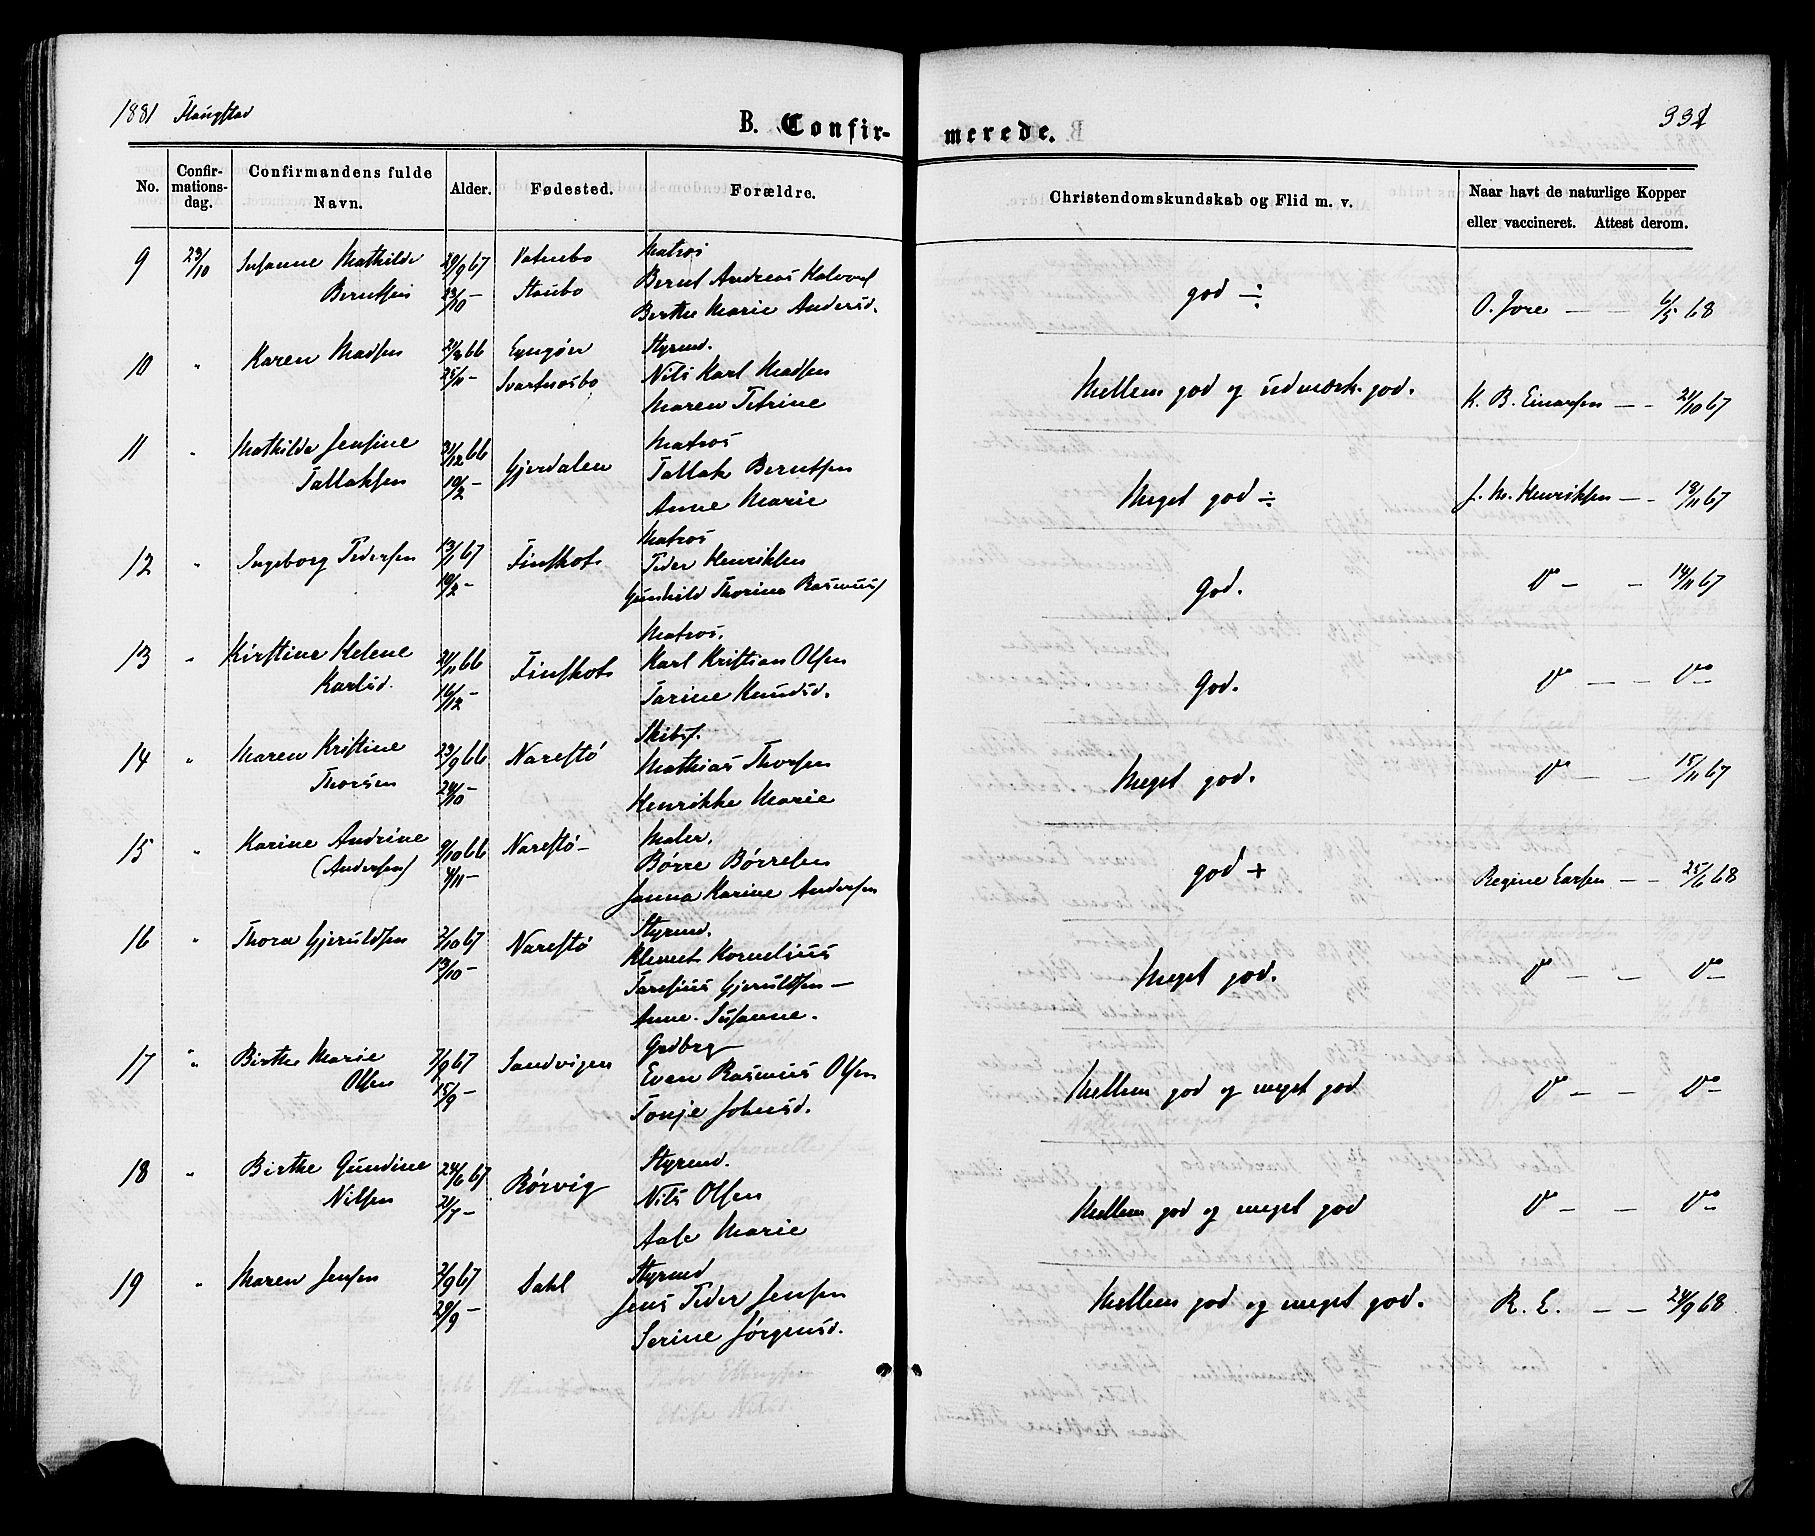 1881 Flangstad
B. Confir-merede.
332
No. Confir-mations-dag. Confirmandens fulde Navn. Alder. Fødested. Forældre. Christendomskundskab og Flid m. v. Naar havt de naturlige Kopper eller vaccineret. Attest derom.
9 23/10 Susanne Mathilde 20/9 67 Vatnebo Matros
Berntsen 23/10 — Staubo Bernt Andreas Halvors
Berthe Marie Andersd.
god ÷ O. Jore — — 6/5 68
10 " Karen Madsen 66 Styrmd.
25/11 — Svartnesbo Nils Karl Madsen
Maren Petrine
Mellem god og udmærk. god. K. B. Einarsen — — 21/10 67
11 " Mathilde Jensine 31/12 66 Gjerdalen Matros
Tallaksen 10/2 — Tallak Berntsen
Anne Marie
Meget god ÷ J. M. Henriksen — — 18/11 67
12 " Ingeborg Pedersen 13/1 67 Finskot Matros
10/2 — Peder Henriksen
Gunhild Thorine Rasmuss
God. Do — — 14/11 67
13 " Kirstine Helene 21/11 66 Finskot Matros.
Karlsd. 16/12 — Karl Kristian Olsen
Tarine Knudsd.
God. Do — — Do
14 " Maren Kristine 23/9 66 Narestø Skibsf.
Thorsen 24/10 — Mathias Thorsen
Henrikke Marie
Meget god. Do — — 15/11 67
15 " Karine Andrine 9/10 66 Narestø — Maler.
(Andersen) 4/11 — Børre Børresen
Janna Karine Andersen
god + Regine Larsen — — 25/6 68
16 " Thora Gjeruldsen 2/10 67 Narestø Styrmd.
13/10 — Klemet Kornelius
Taresius Gjeruldsen —
Anne Susanne.
Meget god. Do — — Do
17 " Birthe Marie 7/9 67 Sandvigen Grdbrg
Olsen 15/9 — Even Rasmus Olsen
Tonje Johnsd.
Mellem god og meget god Do — — Do
18 " Birthe Gundine 24/6 67 Rørvig Styrmd.
Nilsen 21/7 — Nils Olsen
Aase Marie
Mellem god og meget god Do — — Do
19 " Maren Jensen 2/9 67 Dahl Styrmd
29/9 — Jens Peder Jensen
Serine Jørgensd.
Mellem god og meget god. R. L. — — 24/9 68